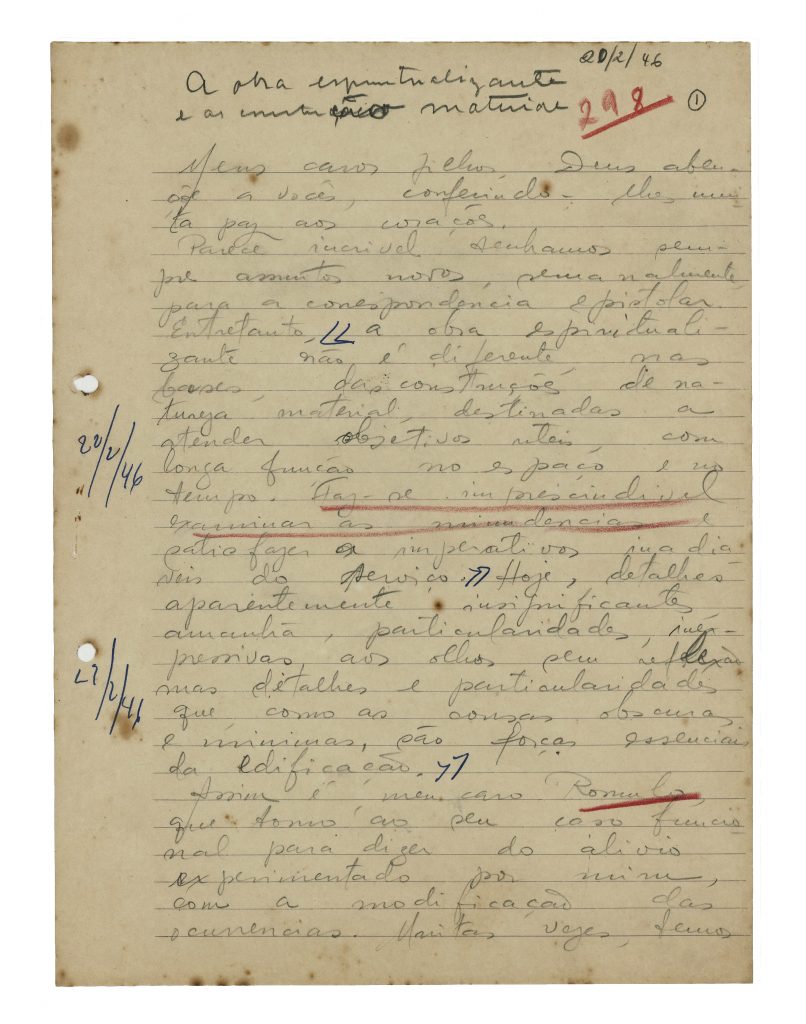 20/2/46
A obra espiritualizante
e as construções materiae
298
1
Meus caros filhos, Deus aben-
çoe a vocês, conferindo-lhes mui-
ta paz aos corações.
Parece incrivel tenhamos sem-
pre assuntos novos, semanalmente,
para a correspondencia epistolar.
Entretanto, << a obra espirituali-
zante não é diferente, nas
bases, das construções de na-
tureza material, destinadas a
atender objetivos uteis, com
longa função no espaço e no
tempo. Faz-se imprescindivel
examinar as minudencias e
satisfazer a imperativos inadia
veis do serviço. >> Hoje, detalhes
aparentemente insignificantes,
amanhã, particularidades, inex-
pressivas, aos olhos sem reflexão
mas detalhes e particularidades
que, como as cousas obscuras
e minimas, são forças essenciais
da edificação. >>
Assim é, meu caro Romulo,
que torno ao seu caso funcio
nal para dizer do alivio
experimentado por mim,
com a modificação das
ocurrencias. Muitas vezes, temos
20/2/46
27/2/46